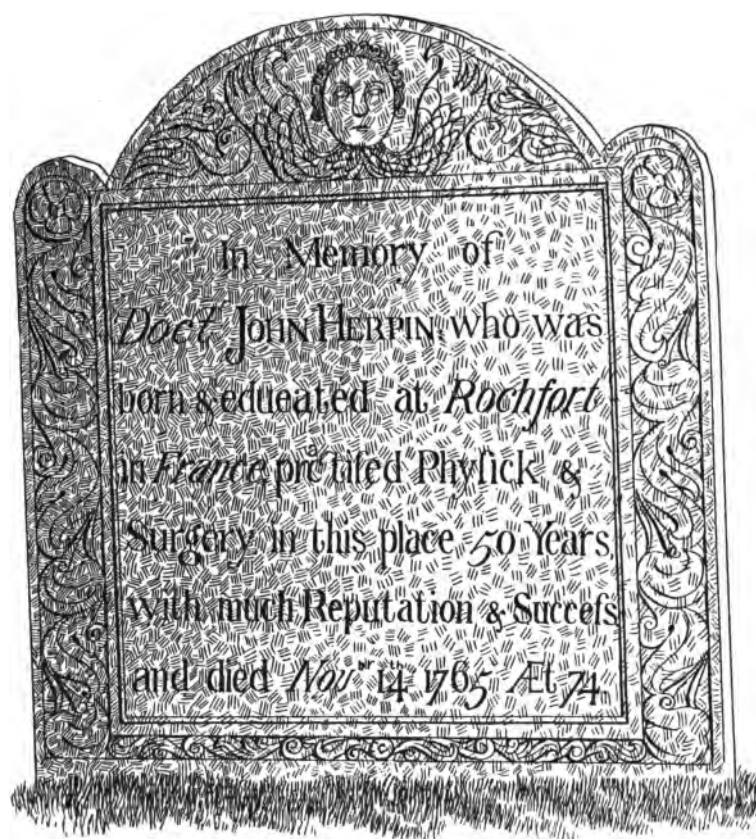 In Memory of
Doct JOHN HERPIN, who was
born & edueated at Rochfort
in France, pracͭtiſed Phyſick &
Surgery in this place 50 Years,
with much Reputation & Succeſs
and died Novbr 14th 1765 Æt 74.